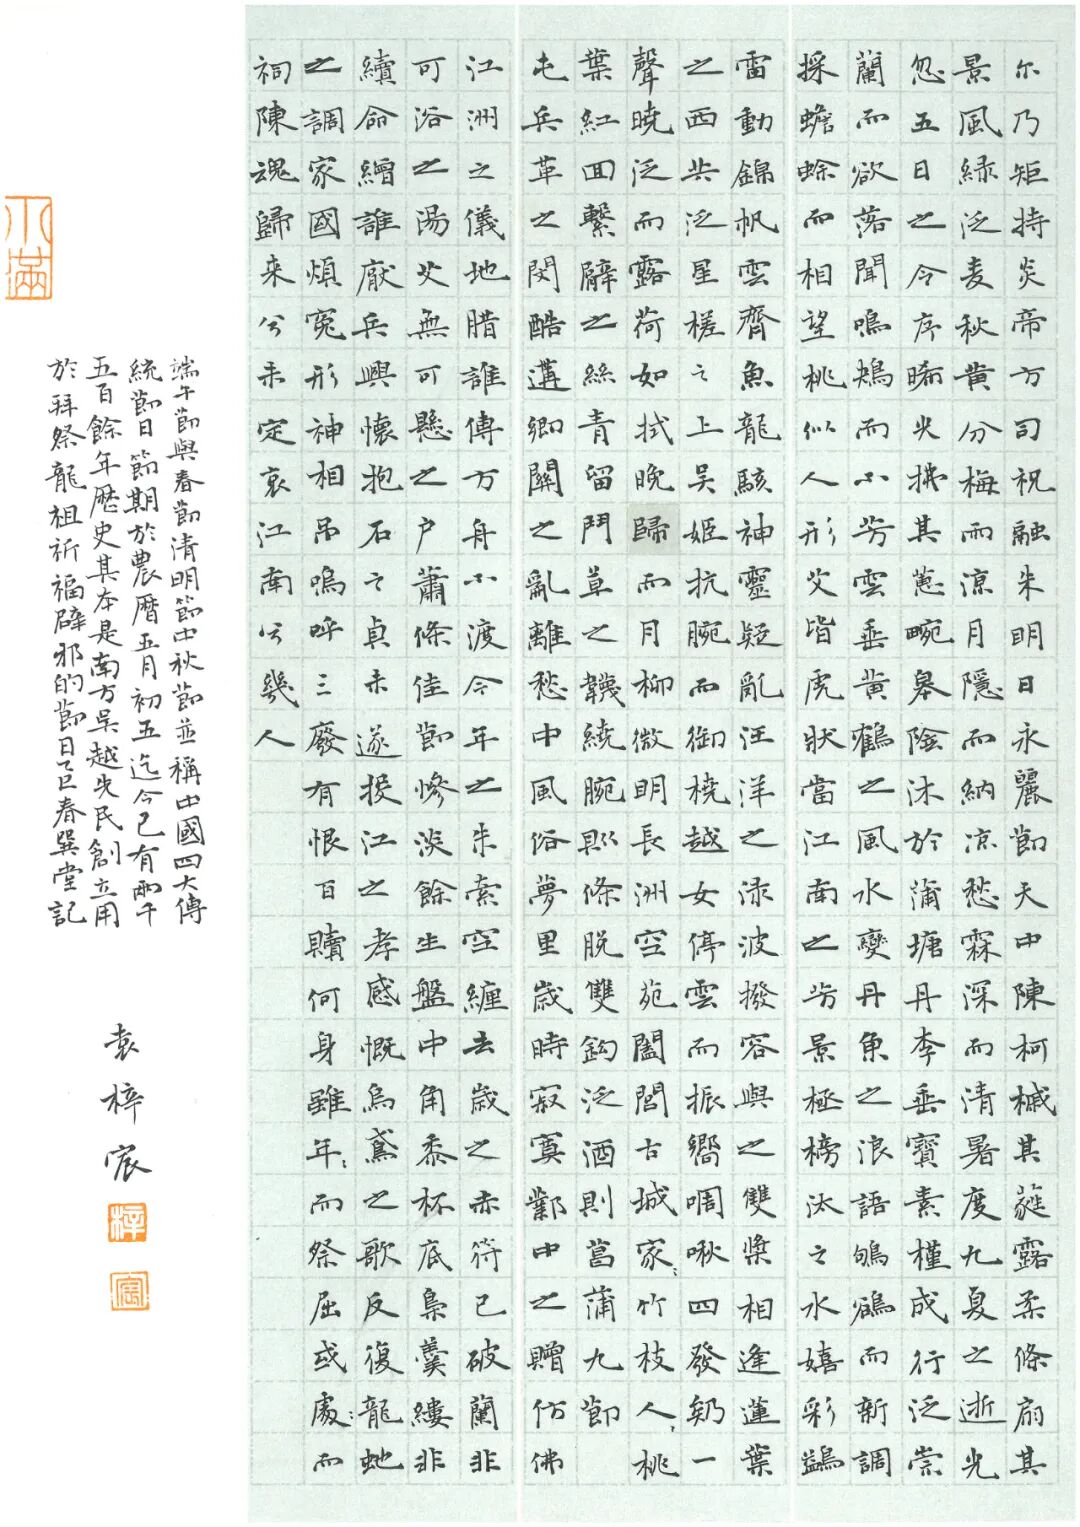 尔乃矩持炎帝方司祝融朱明日永麗節天中陳柯槭其蕤露柔條扇其
景風綠泛麦秋黄分梅而涼月隱而納涼愁霖深而清暑度九夏之逝光
忽五日之今序晞光拂其蕙畹皋陰沐於蒲塘丹李垂寶素槿成行泛崇
蘭而欲落聞鳴鴂而不芳雲垂黄鶴之風水變丹魚之浪語鴝鵒而新調
採蟾蜍而相望桃似人形艾皆虎狀當江南之芳景極榜汰之水嬉彩鷁
雷動錦帆雲齊魚龍駭神靈疑亂汪洋之渌波撥容與之雙槳相逢蓮葉
之西共泛星槎之上吴姬抗腕而御橈越女停雲而振嚮啁啾四發邪一
聲曉泛而露荷如拭晚歸而月柳微明長洲空苑闔閭古城家〻竹枝人〻桃
葉紅回繫臂之絲青留鬥草之韈繞腕則條脱雙鈎泛酒則菖蒲九節
屯兵革之閔酷遘鄉關之亂離愁中風俗夢里歲時寂寞鄴中之贈仿佛
江洲之儀地腊誰傳方舟不渡今年之朱索空纏去歲之赤符已破蘭非
可浴之湯艾無可懸之户蕭條佳節慘淡餘生盤中角黍杯底梟羹縷非
續命繒誰厭兵興懷抱石之貞未遂投江之孝感慨烏鳶之歌反復龍虵
之調家國煩冤形神相吊嗚呼三廢有恨百贖何身雖年〻而祭屈或處〻而
祠陳魂歸来兮未定哀江南兮幾人
小滿
端午節與春節清明節中秋節並稱中國四大傳
統節日節期於農曆五月初五迄今已有兩千
五百餘年歷史其本是南方吴越先民創立用
於拜祭龍祖祈福辟邪的節日乙巳春巽堂記
袁梓宸
梓
宸